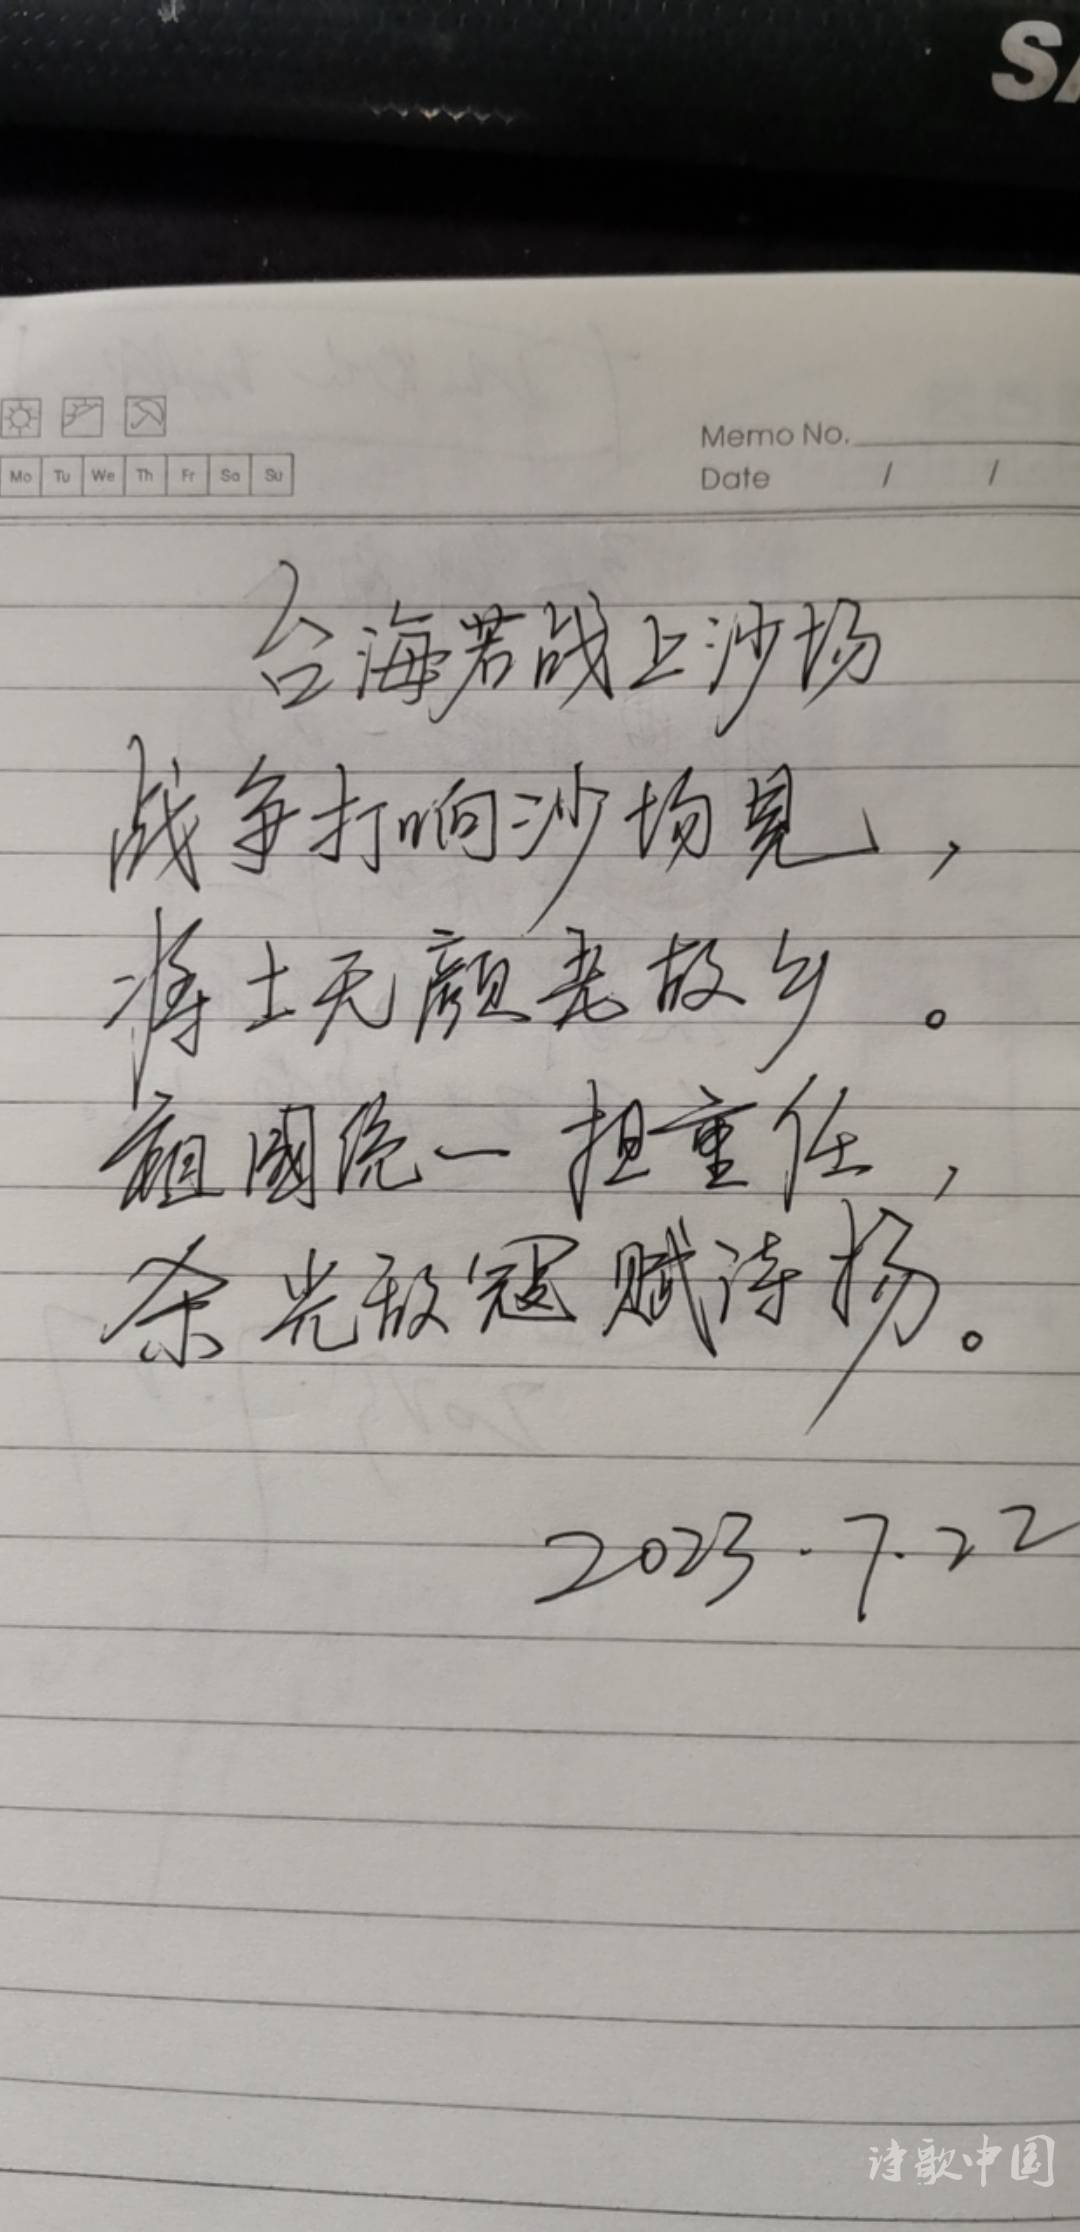 SA
Memo No.
Mo Tu We Th Fr Sa Su
Date / /
台海若战上沙场
战争打响沙场見，
将士无颜老故乡。
祖國统一担重任，
杀光敌寇赋诗扬。
2023.7.22
诗歌中国